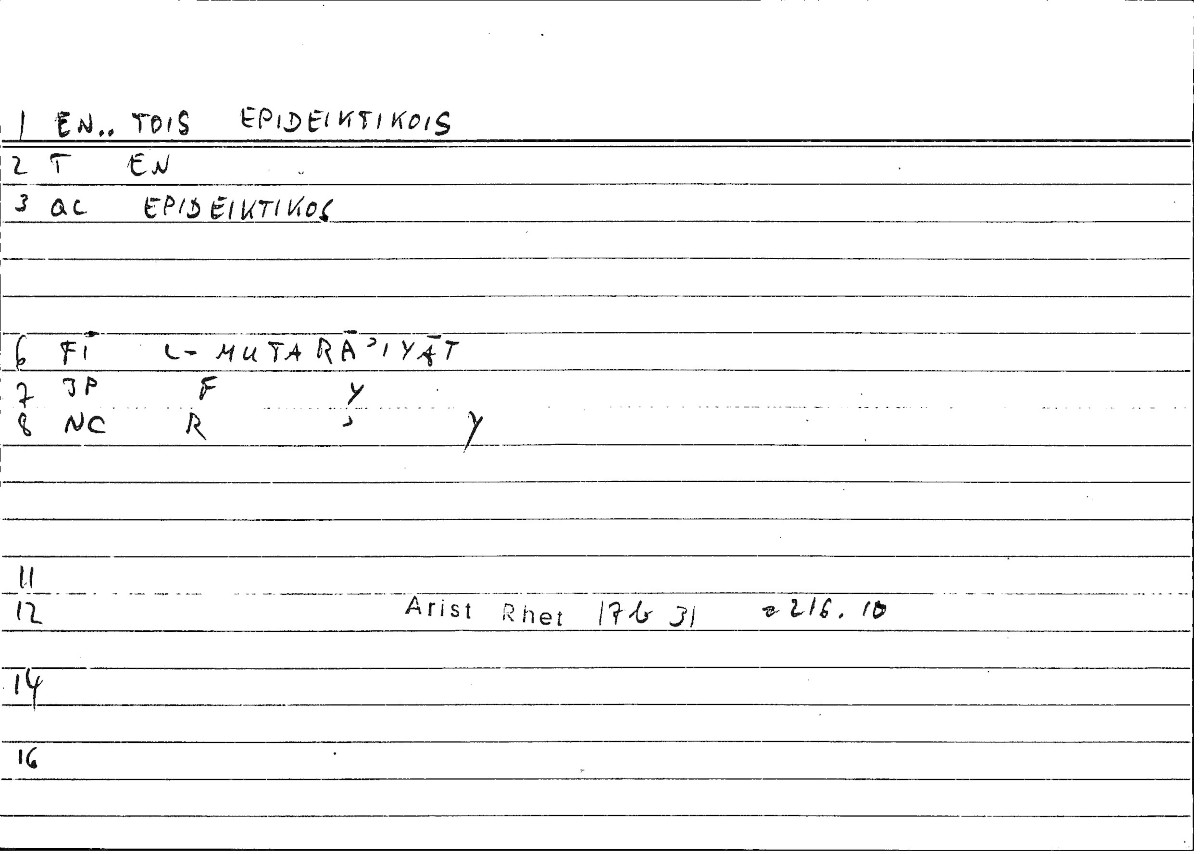 1 EN.. TOIS EPIDEIKTIKOIS
2 T EN
3 QC EPIDEIKTIKOS
6 FĪ L-MUTARĀʾIYĀT
7 JP F Y
8 NC R ʾ Y
11
12 Arist Rhet 17b 31 = 216.10
14
16